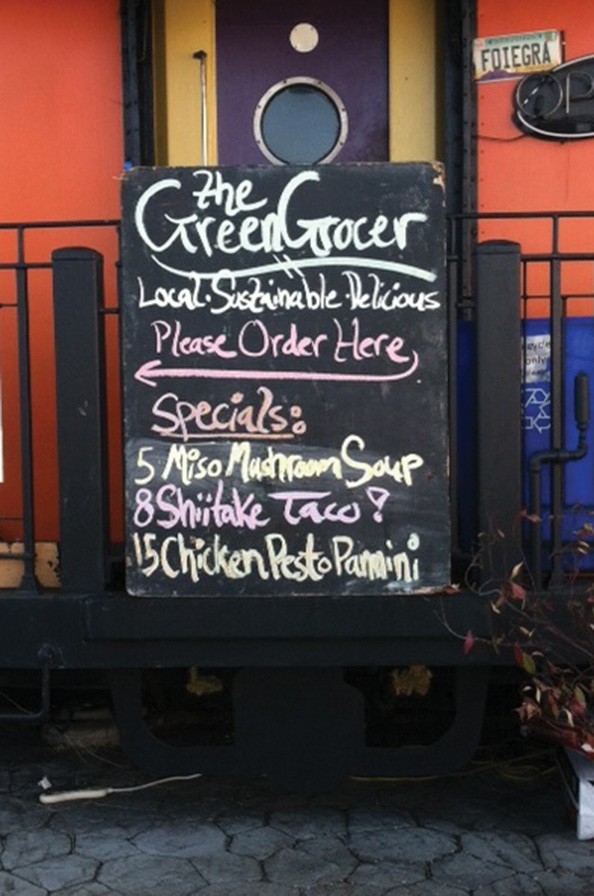 FOIEGRA
OP
the
GreenGrocer
Local · Sustainable · Delicious
Please Order Here
Specials:
5 Miso Mushroom Soup
8 Shiitake Taco!
15 Chicken Pesto Pannini
only